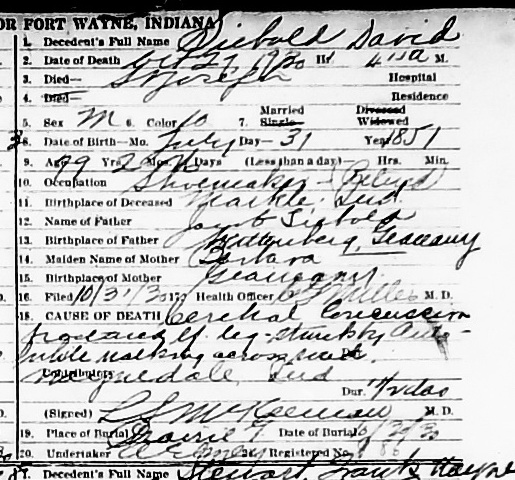 OR FORT WAYNE, INDIANA
1. Decedent's Full Name Diebold David
2. Date of Death Oct 27 1930 Hr 4 10 a M.
3. Died— St Joseph Hospital
4. Died— Residence
5. Sex M 6. Color W 7. Single— Married Widowed Divorced
8. Date of Birth—Mo. July Day— 31 Year 1851
9. Age 79 Yrs. 2 Mos. Days (Less than a day) Hrs. Min.
10. Occupation Shoemaker - Retired
11. Birthplace of Deceased Markle, Ind.
12. Name of Father Jacob Diebold
13. Birthplace of Father Wittenberg, Germany
14. Maiden Name of Mother Barbara
15. Birthplace of Mother Germany
16. Filed 10/31/30 17. Health Officer Miller M. D.
18. CAUSE OF DEATH Cerebral Concussion
fracture of leg - struck by Auto-
mobile walking across road.
Contributory Waynedale, Ind
Dur. days
(Signed) McKeeman M. D.
19. Place of Burial Prairie Date of Burial 10/30
20. Undertaker 21. Registered No.
1. Decedent's Full Name Stewart, Frank Wayne